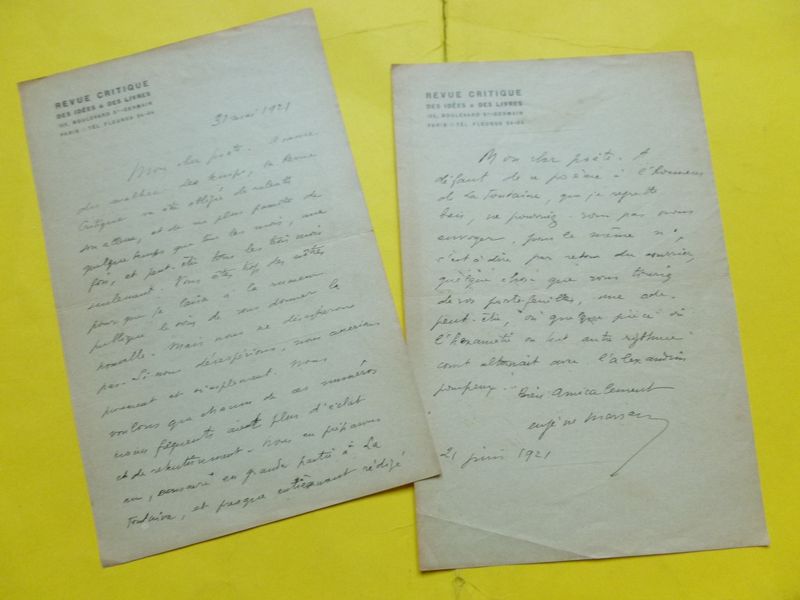 REVUE CRITIQUE
DES IDÉES & DES LIVRES
155, BOULEVARD ST-GERMAIN
PARIS - TÉL. FLEURUS
31 mai 1921
Mon cher poète.
du malheur des temps, la Revue
Critique a été obligée de ralentir
son allure, et de ne plus paraître de
quelque temps que tous les mois, une
fois, et peut-être tous les trois mois
seulement. Vous êtes trop des nôtres
pour que je laisse à la rumeur
publique le soin de vous donner la
nouvelle. Mais nous ne désespérons
pas. Si nous désespérions, nous
purement et simplement. Nous
voulons que chacun de ces numéros
moins fréquents ait plus d'éclat
et de retentissement. Nous en préparons
un, consacré en grande partie à La
Fontaine, et presque entièrement rédigé
REVUE CRITIQUE
DES IDÉES & DES LIVRES
155, BOULEVARD ST-GERMAIN
PARIS - TÉL. FLEURUS
Mon cher poète. A
défaut de ce poème à l'honneur
de La Fontaine, que je regrette
bien, ne pourriez-vous pas nous
envoyer, pour le même n°,
c'est à dire par retour du courrier,
quelque chose que vous tiriez
de vos portefeuilles, une ode
peut-être, ou quelque pièce où
l'hexamètre ou tout autre rythme
court alternait avec l'alexandrin
pompeux.
Bien amicalement
Eugène Marsan
21 juin 1921